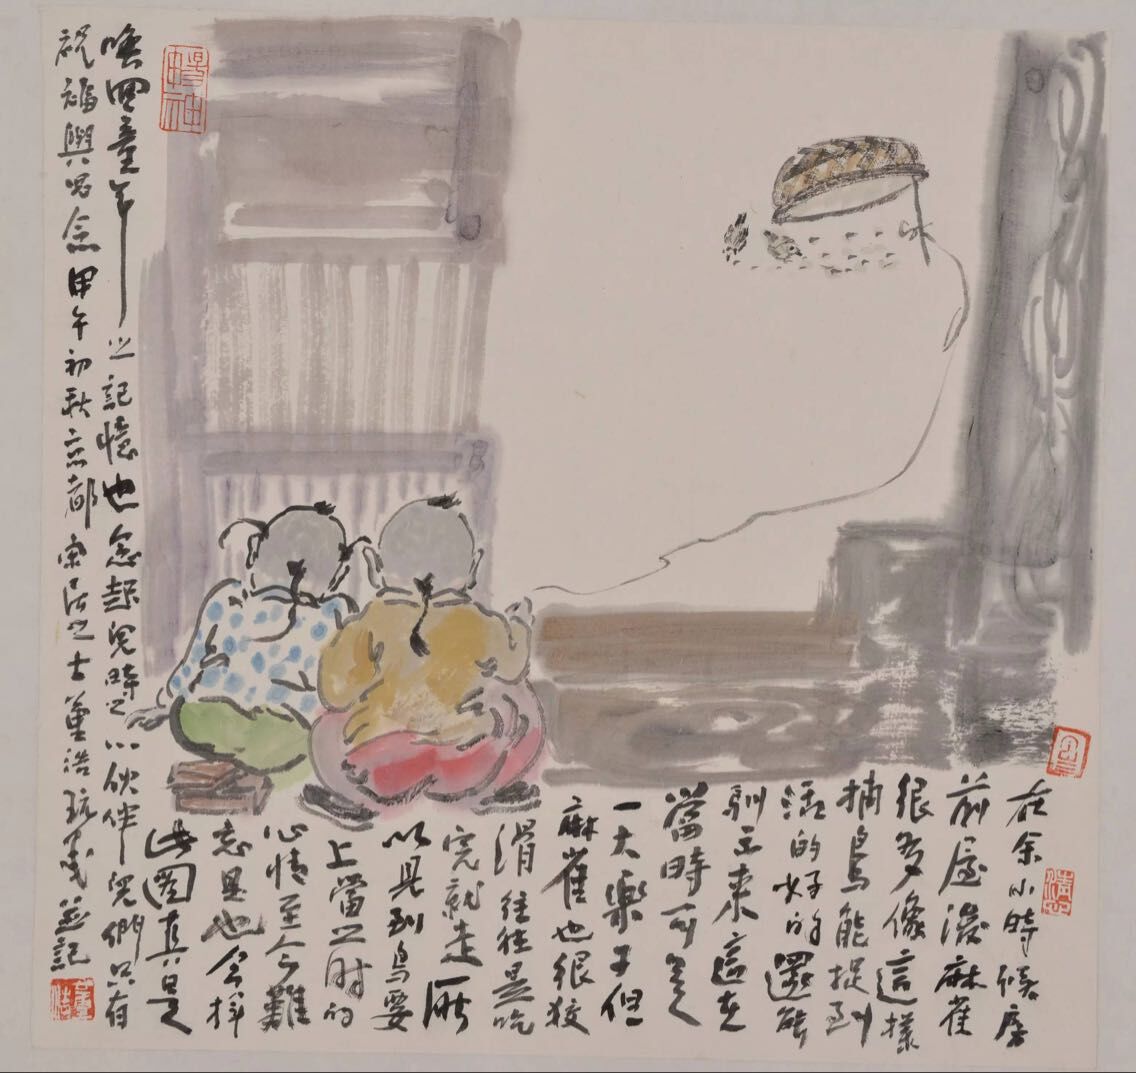 在余小時候房
前屋後麻雀
很多像這樣
捕鳥能捉到
活的好的還能
馴 來這在
當時可是
一大樂子但
麻雀也很狡
滑往往是吃
完就走所
以見到鳥要
上當之時的
心情至今難
忘 也今
此圖真是
喚回童年之記憶也念起兒時之小伙伴兒們只有
祝福與思念甲午初秋京都 居之士董浩 並記
董浩